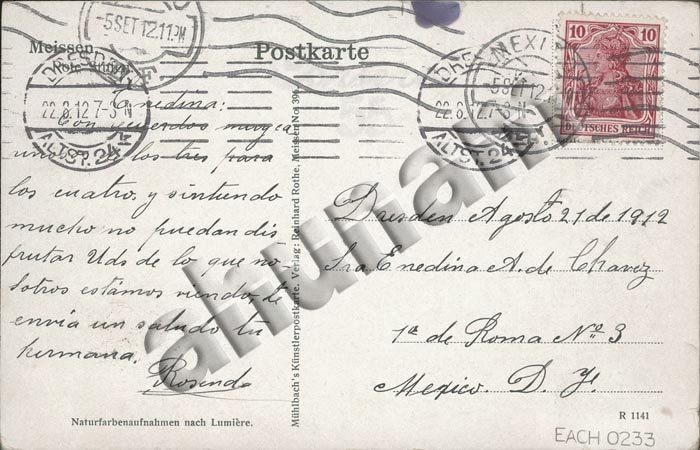 5 SET 12.11.PM
Meissen
Postkarte
10 10
DEUTSCHES REICH
MEXI
5 SET 12
DRESDEN
22.8.12.7-8N
ALTST. 24
DRE
22.8.12.7-8N
ALTST. 24
Enedina:
Con recuerdos muy ca
de los tres para
los cuatro, y sintiendo
mucho no puedan dis
frutar Uds de lo que no-
sotros estámos viendo, te
envia un saludo tu
hermana.
Rosenda
Mühlbach's Künstlerpostkarte. Verlag: Reinhard Rothe, Meissen No. 39
Dresden Agosto 21 de 1912
Sra Enedina A. de Chavez
1ª de Roma Nº 3
Mexico. D. F.
Naturfarbenaufnahmen nach Lumière.
R 1141
EACH 0233
ahunam